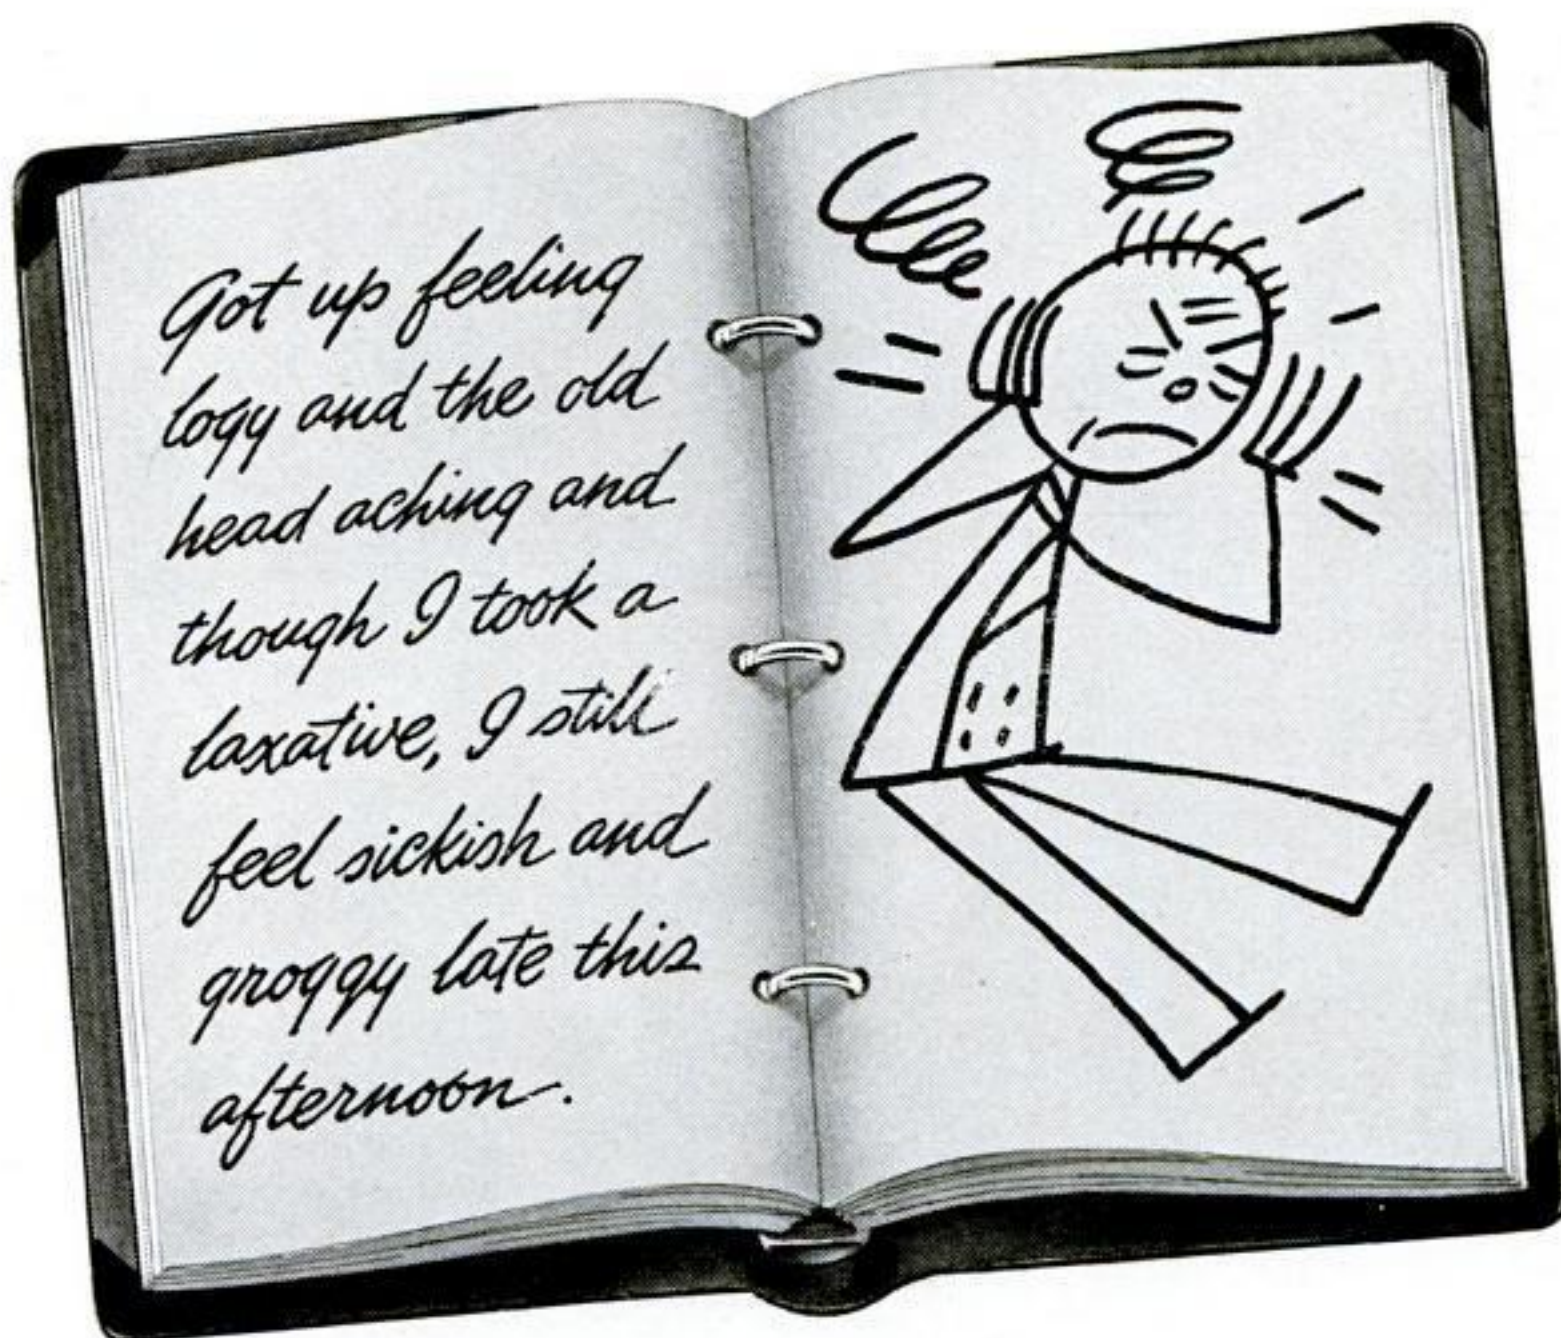 Got up feeling
logy and the old
head aching and
though I took a
laxative, I still
feel sickish and
groggy late this
afternoon.